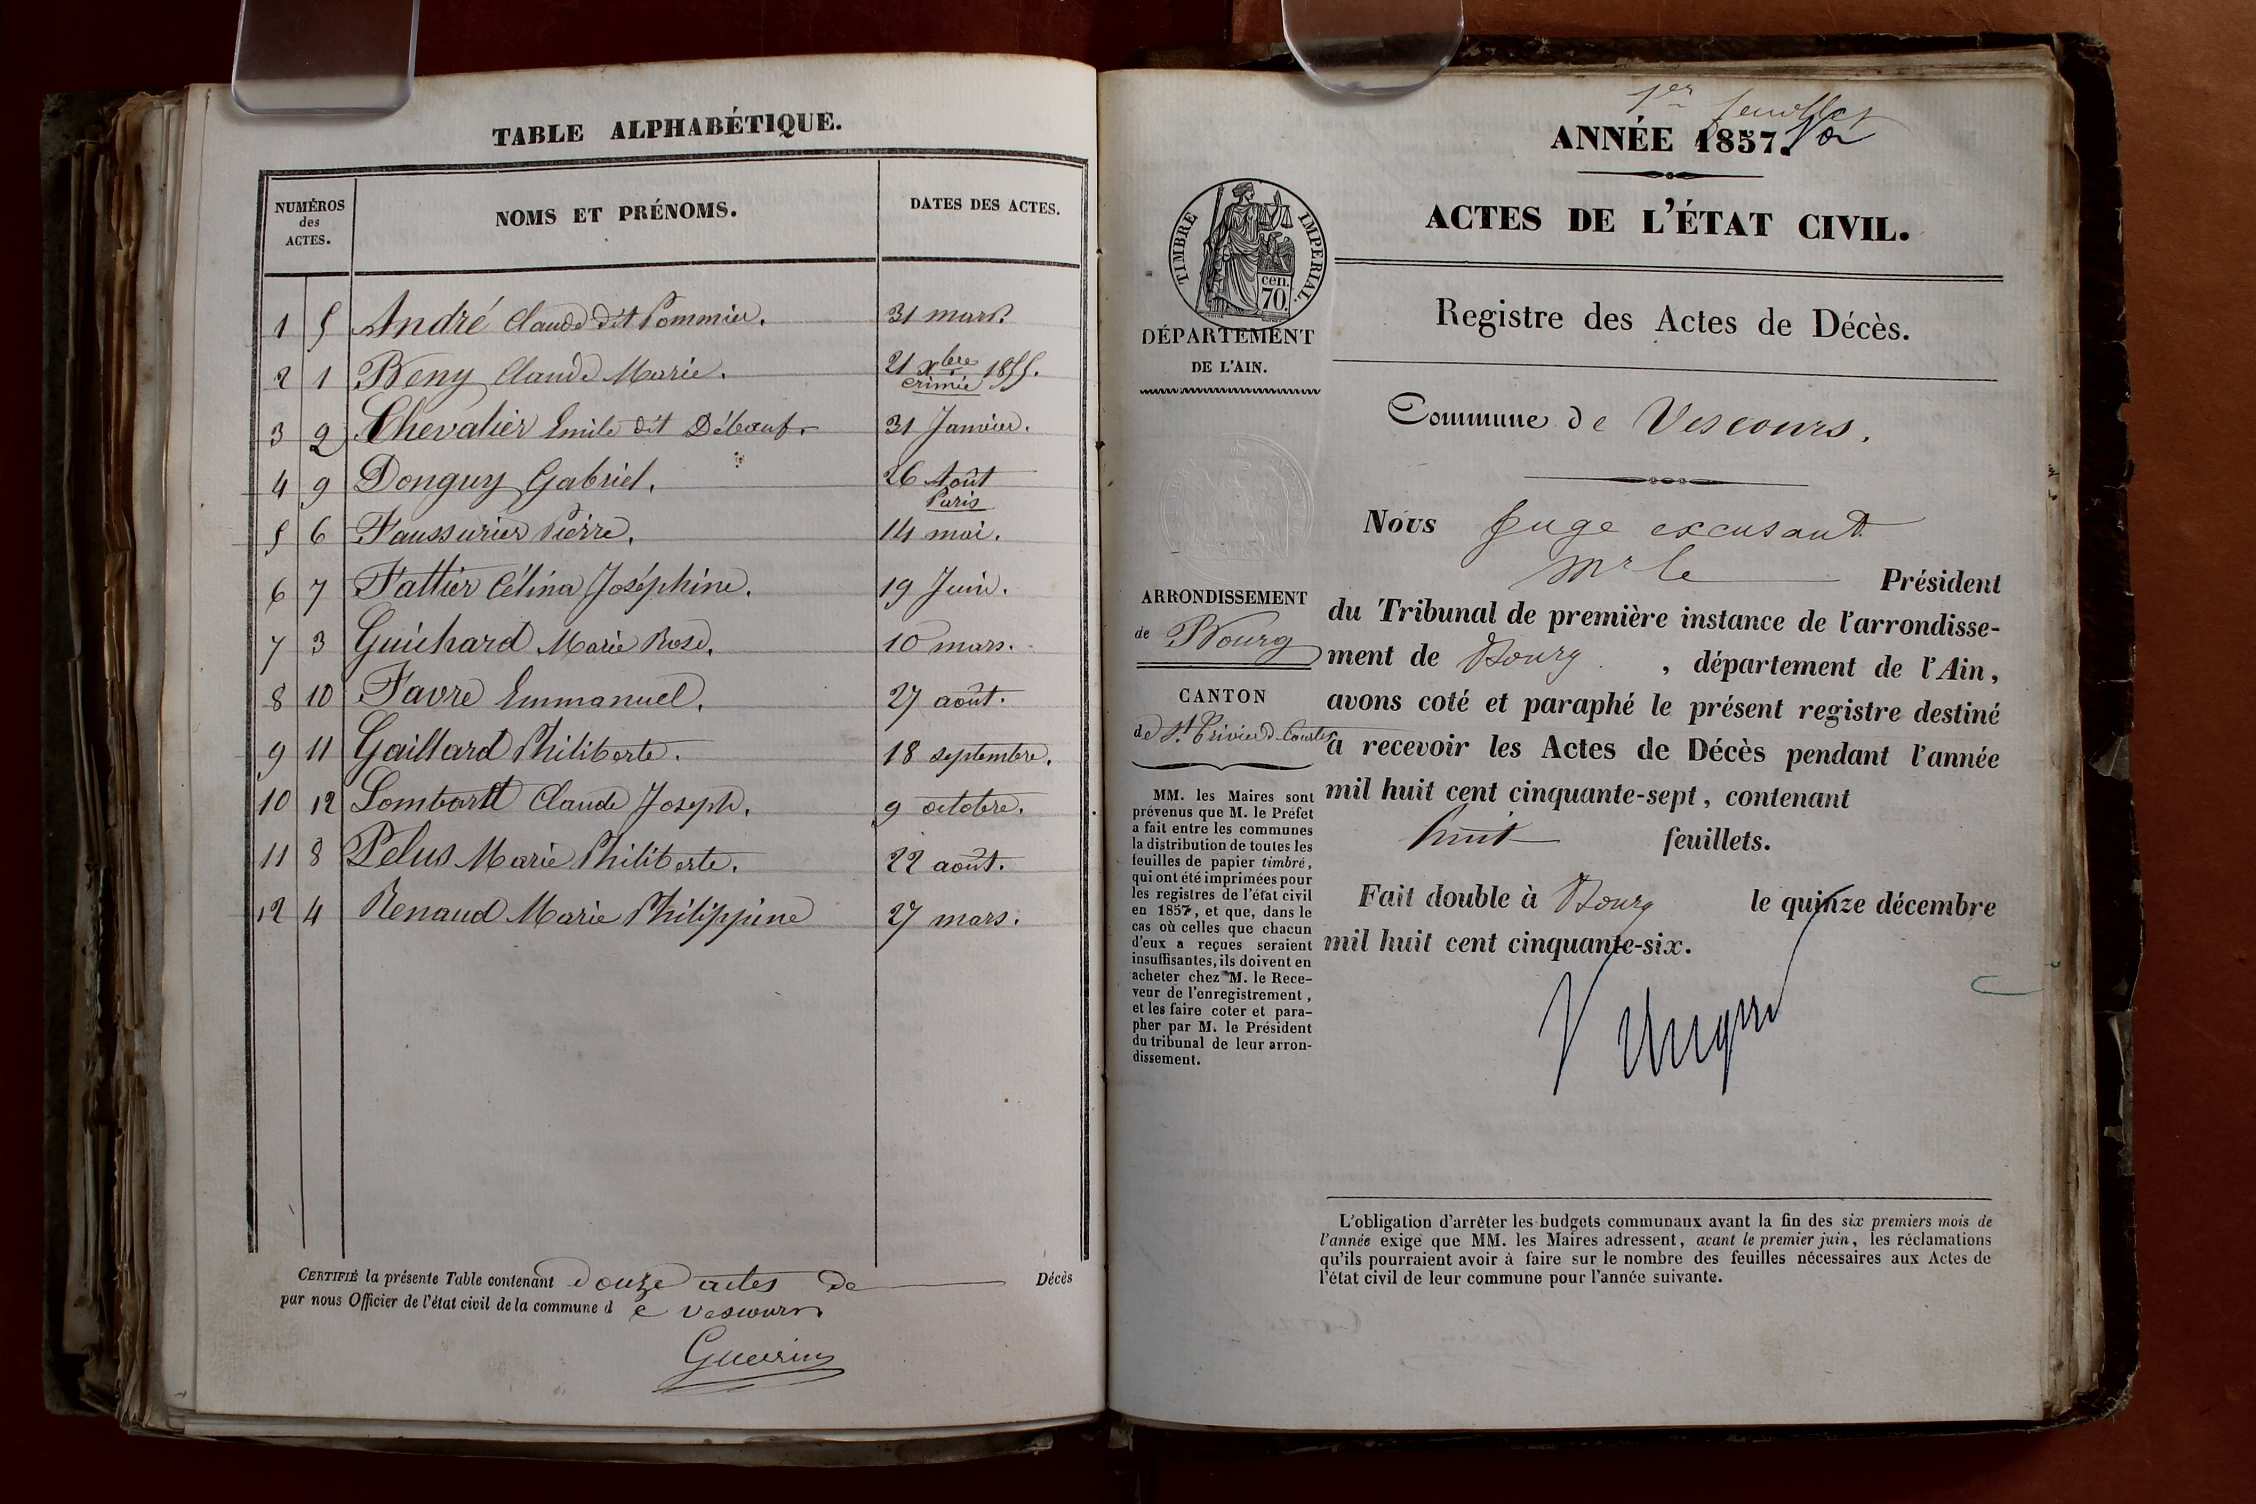 TABLE ALPHABÉTIQUE.
NUMÉROS
des
ACTES.
NOMS ET PRÉNOMS.
DATES DES ACTES.
1 5 André Claude dit Pommier. 31 mars.
2 1 Beny Claude Marie. 21 Xbre 1855.
crimée
3 2 Chevalier Emile dit Débœuf. 31 Janvier.
4 9 Donguy Gabriel. 26 Août
Paris
5 6 Faussurier Pierre. 14 mai.
6 7 Fattier Célina Joséphine. 19 Juin.
7 3 Guichard Marie Rose. 10 mars.
8 10 Favre Emmanuel. 27 août.
9 11 Gaillard Philiberte. 18 septembre.
10 12 Lombard Claude Joseph. 9 octobre.
11 8 Pelus Marie Philiberte. 22 août.
12 4 Renaud Marie Philippine 27 mars.
CERTIFIÉ la présente Table contenant douze actes de Décès
par nous Officier de l'état civil de la commune de Vescours
Guerin
1er feuillet
ANNÉE 1857.
ACTES DE L'ÉTAT CIVIL.
TIMBRE IMPERIAL.
cen.
70
DÉPARTEMENT
DE L'AIN.
Registre des Actes de Décès.
Commune de Vescours.
ARRONDISSEMENT
de Bourg
CANTON
de St Trivier d Courtes
MM. les Maires sont
prévenus que M. le Préfet
a fait entre les communes
la distribution de toutes les
feuilles de papier timbré,
qui ont été imprimées pour
les registres de l'état civil
en 1857, et que, dans le
cas où celles que chacun
d'eux a reçues seraient
insuffisantes, ils doivent en
acheter chez M. le Rece-
veur de l'enregistrement,
et les faire coter et para-
pher par M. le Président
du tribunal de leur arron-
dissement.
Nous juge excusant
Mr le Président
du Tribunal de première instance de l'arrondisse-
ment de Bourg, département de l'Ain,
avons coté et paraphé le présent registre destiné
à recevoir les Actes de Décès pendant l'année
mil huit cent cinquante-sept, contenant
huit feuillets.
Fait double à Bourg le quinze décembre
mil huit cent cinquante-six.
L'obligation d'arrêter les budgets communaux avant la fin des six premiers mois de
l'année exige que MM. les Maires adressent, avant le premier juin, les réclamations
qu'ils pourraient avoir à faire sur le nombre des feuilles nécessaires aux Actes de
l'état civil de leur commune pour l'année suivante.